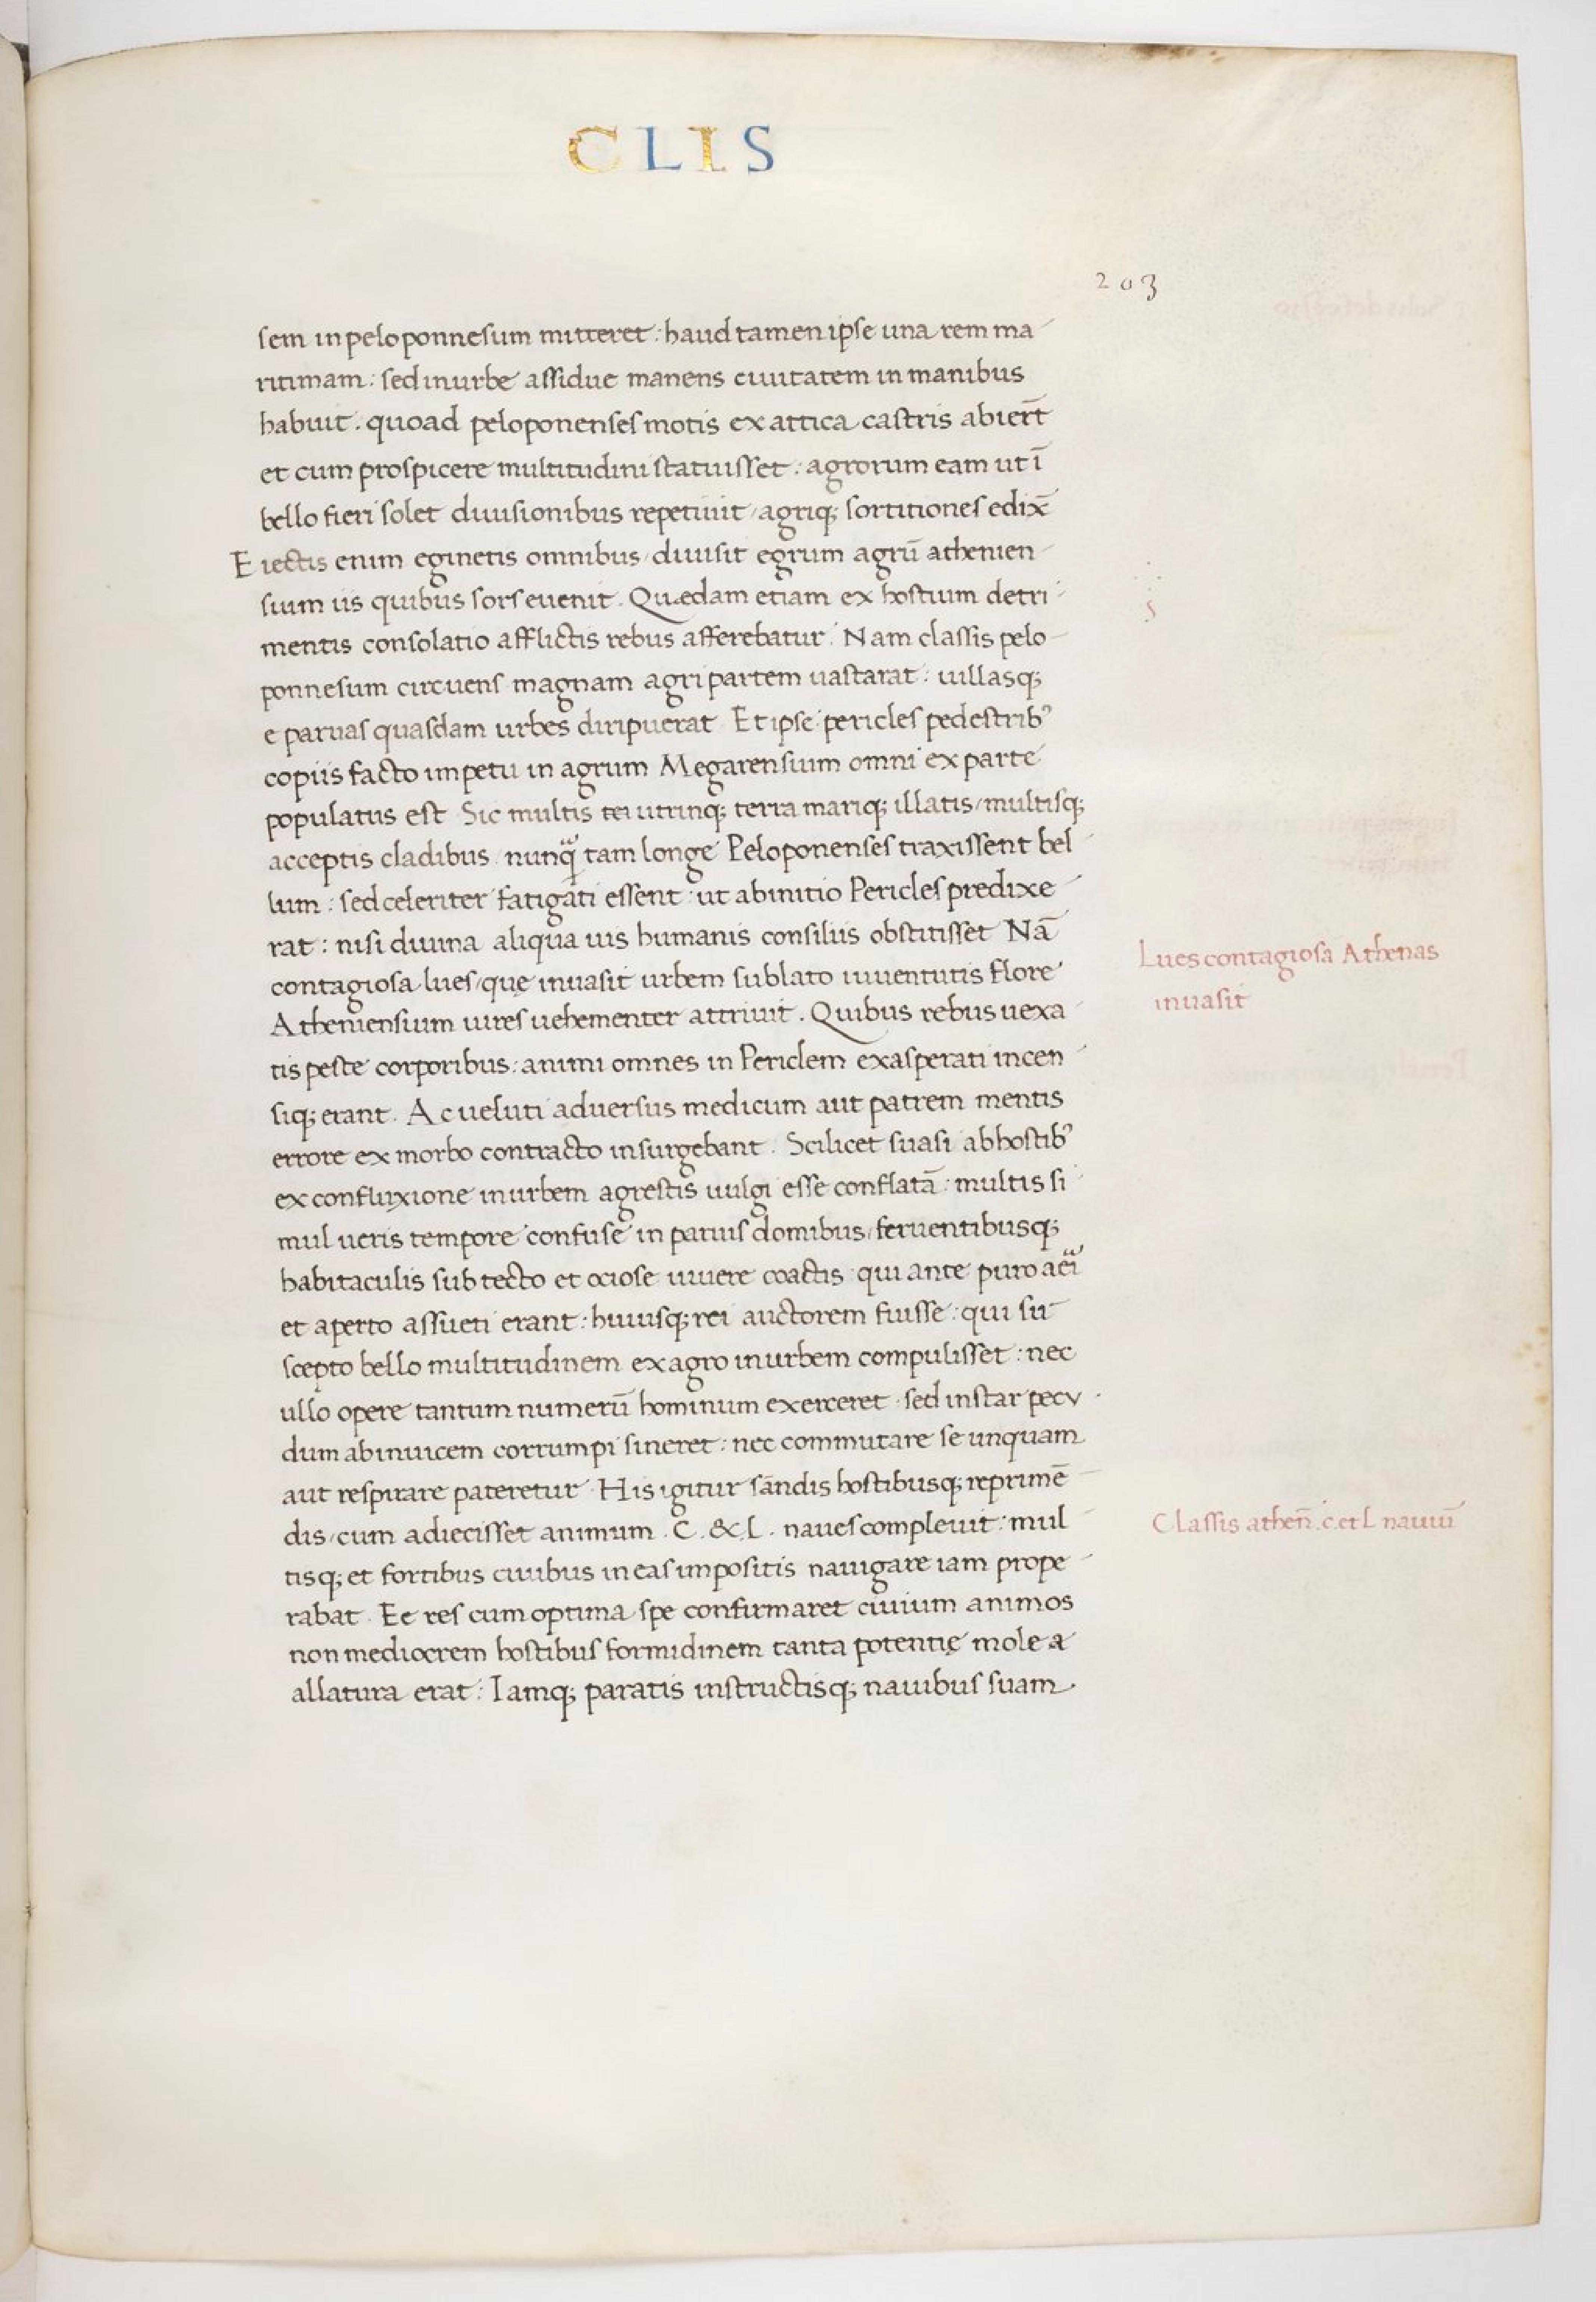 CLIS
203
sem in peloponnesum mitteret: haud tamen ipse una rem ma
ritimam: sed in urbe assidue manens ciuitatem in manibus
habuit: quoad peloponenses motis ex attica castris abier̄t
et cum prospicere multitudini statuisset: agrorum eam ut ī
bello fieri solet diuisionibus repetiuit/agriq; sortitiones edix̄
Eiectis enim eginetis omnibus/diuisit egrum agrū athenien
sium iis quibus sors euenit. Quædam etiam ex hostium detri
mentis consolatio afflictis rebus afferebatur. Nam classis pelo
ponnesum circuens magnam agri partem uastarat: uillasq;
e paruas quasdam urbes diripuerat Et ipse pericles pedestrib⁹
copiis facto impetu in agrum Megarensium omni ex parte
populatus est Sic multis utrinq; terra mariq; illatis/multisq;
acceptis cladibus nunq̃ tam longe Peloponenses traxissent bel
lum: sed celeriter fatigati essent: ut ab initio Pericles predixe
rat: nisi diuina aliqua uis humanis consiliis obstitisset Nā
contagiosa lues/quę inuasit urbem sublato iuuentutis flore
Atheniensium uires uehementer attriuit. Quibus rebus uexa
tis peste corporibus: animi omnes in Periclem exasperati incen
siq; erant. Ac ueluti aduersus medicum aut patrem mentis
errore ex morbo contracto insurgebant. Scilicet suasi ab hostib⁹
ex confluxione in urbem agrestis uulgi esse conflatā: multis si
mul ueris tempore confuse in paruis domibus/feruentibusq;
habitaculis sub tecto et ociose uiuere coactis: qui ante puro aei
et aperto assueti erant: huiusq; rei auctorem fuisse: qui su
scepto bello multitudinem ex agro in urbem compulisset: nec
ullo opere tantum numerū hominum exerceret: sed instar pecu
dum ab inuicem corrumpi sineret: nec commutare se unquam
aut respirare pateretur His igitur sānndis hostibusq; reprimē
dis/cum adiecisset animum. C. & L. naues compleuit: mul
tisq; et fortibus ciuibus in eas impositis nauigare iam prope
rabat. Ec res cum optima spe confirmaret ciuium animos
non mediocrem hostibus formidinem tanta potentię mole a
allatura erat: Iamq; paratis instructisq; nauibus suam
Lues contagiosa Athenas
inuasit
Classis atheñ. c. et L nauiū